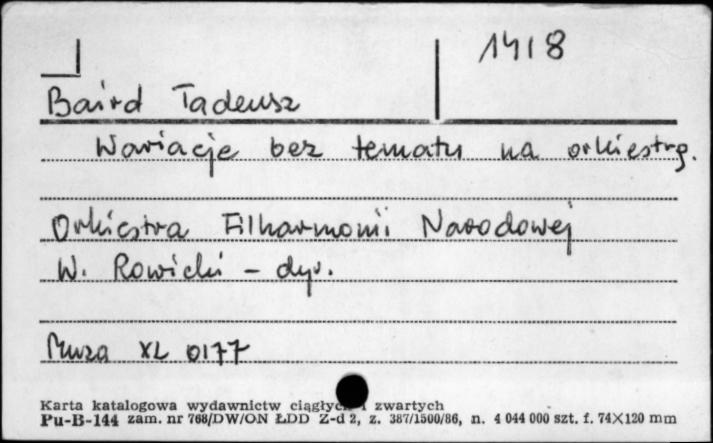 1418
Baird Tadeusz
Wariacje bez tematu na orkiestrę.
Orkiestra Filharmonii Narodowej
W. Rowicki – dyr.
Muza XL 0177
Karta katalogowa wydawnictw ciągłych i zwartych
Pu-B-144 zam. nr 768/DW/ON ŁDD Z-d 2, z. 387/1500/86, n. 4 044 000 szt. f. 74×120 mm